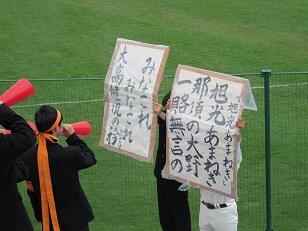 旭光あまねき
旭光あまねき
那須の大野
一路無言の
みなこれ
みなこれ
大高健児の粋